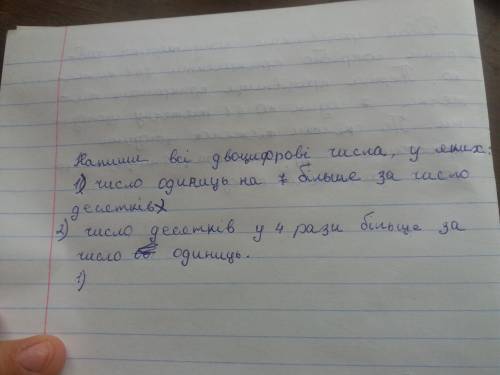 Напиши всі двоцифрові числа, у яких:
1) число одиниць на 7 більше за число
десятків
2) число десятків у 4 рази більше за
число одиниць.
1)